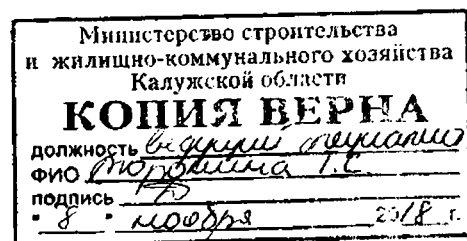 Министерство строительства
и жилищно-коммунального хозяйства
Калужской области
КОПИЯ ВЕРНА
должность ведущий специалист
ФИО Т.С
подпись
" 8 " ноября 2018 г.